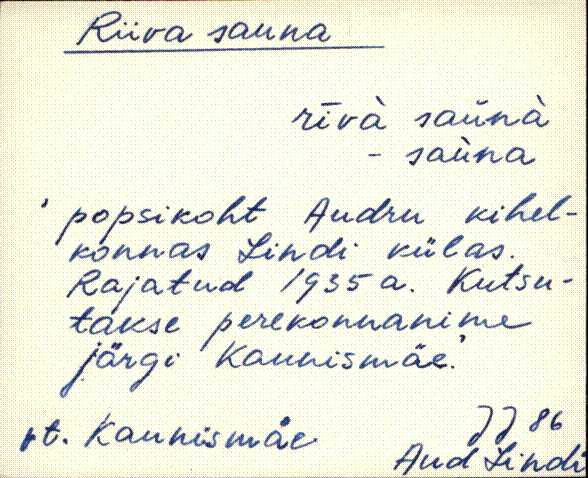 Riiva sauna
rīvà saùnà
- saùna
'popsikoht Audru kihel-
konnas Lindi külas.
Rajatud 1935 a. Kutsu-
takse perekonnanime
järgi Kaunismäe.'
vt. Kaunismäe
JJ 86
Aud Lindi